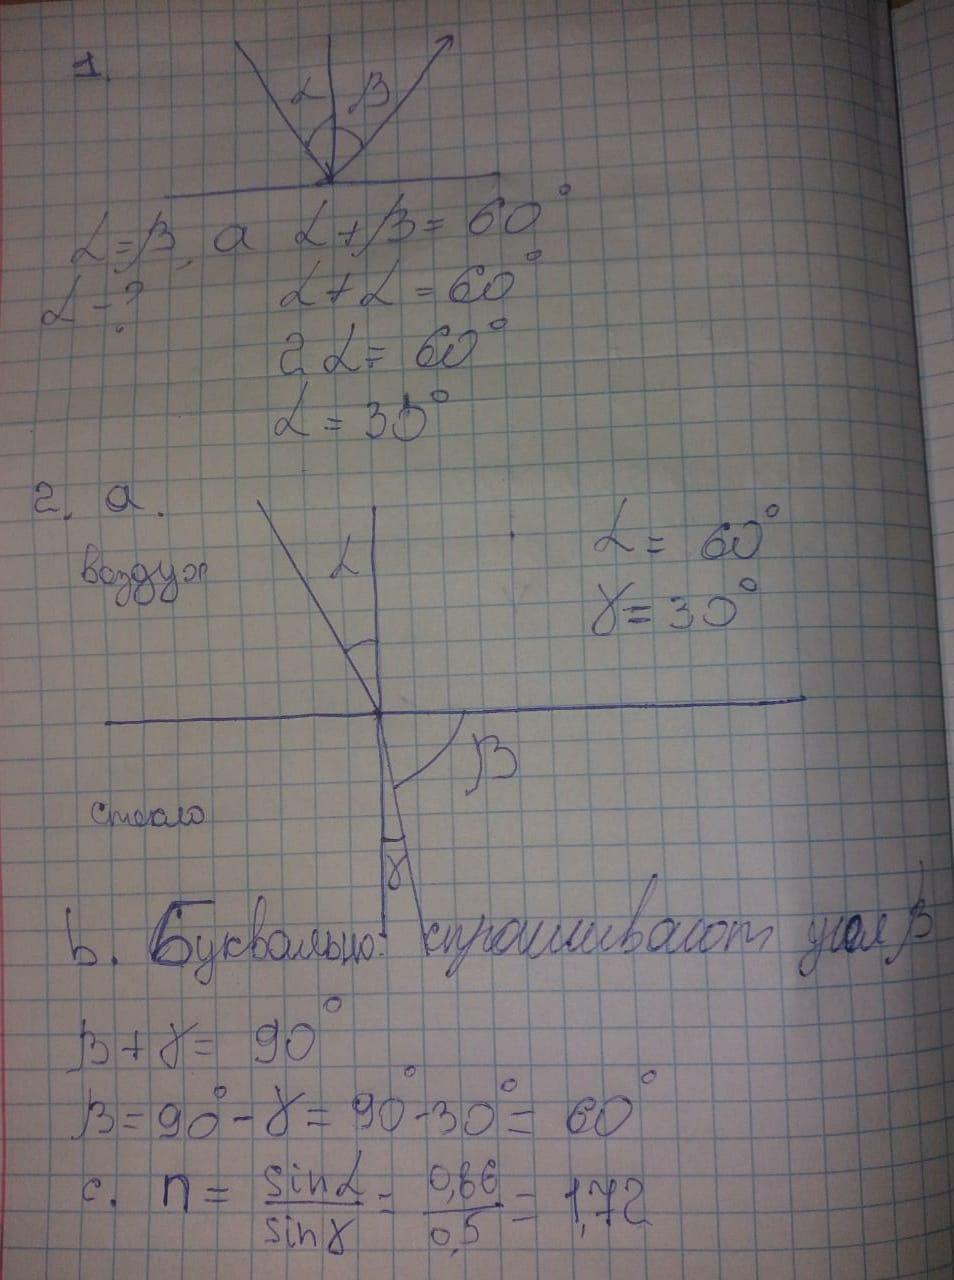 1.
α β
α=β, а α+β=60°
α-? α+α=60°
2α=60°
α=30°
2. a.
воздух α α=60°
γ=30°
β
стекло
γ
b. Буквально: спрашивают угол β
β+γ=90°
β=90°-γ=90-30°=60°
c. n = sinα/sinγ = 0,86/0,5 = 1,72